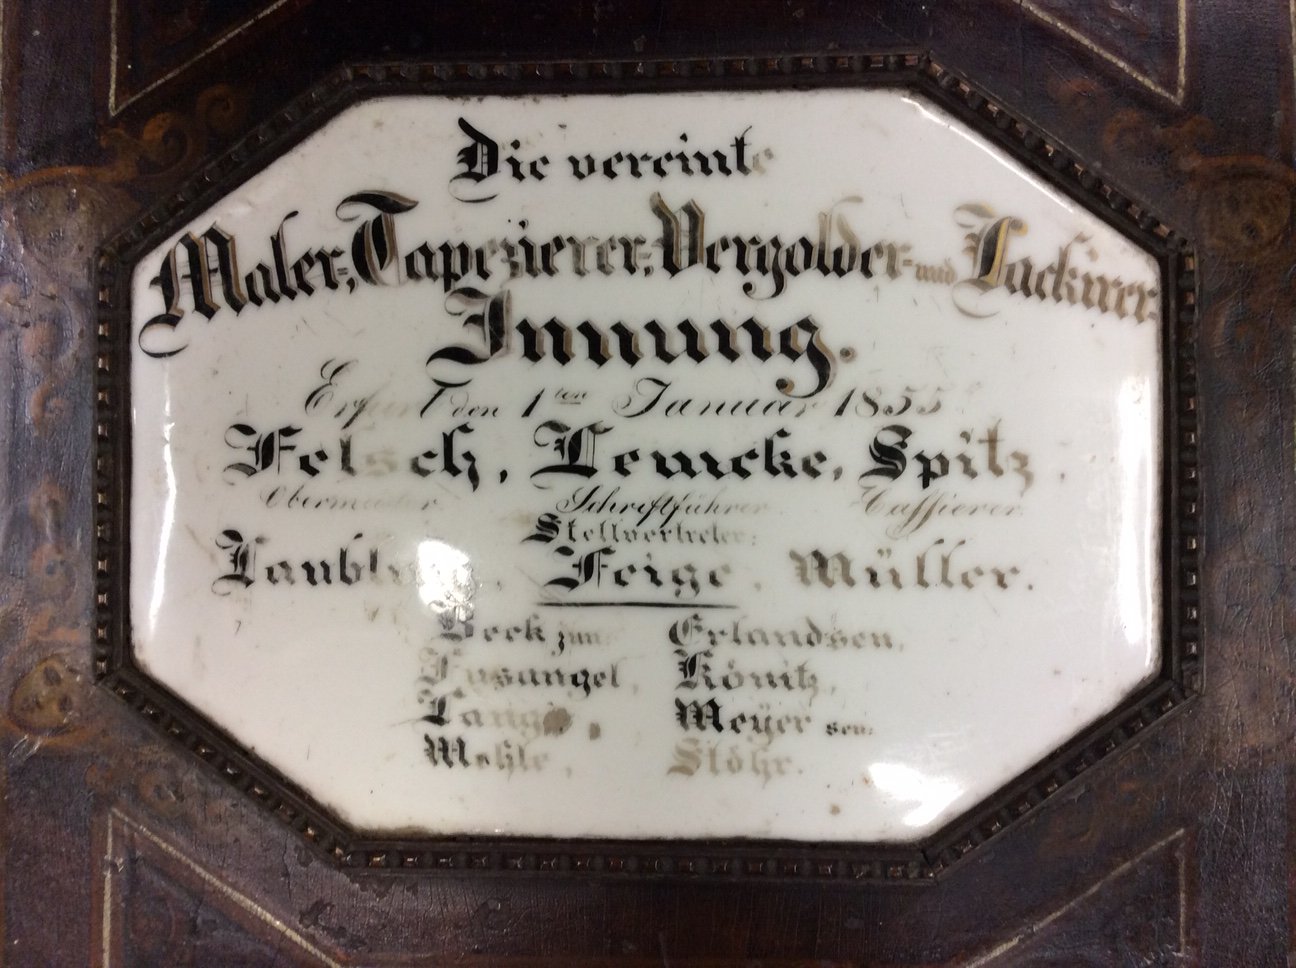 Die vereinte
Maler-, Tapezierer-, Vergolder- und Lackirer-
Innung.
Erfurt den 1ten Januar 1855
Felsch, Lemcke, Spitz.
Obermeister Schriftführer Cassierer
Stellvertreter:
Feige, Müller.
Beck jun. Erlandsen,
Fusangel, König,
Lange, Meÿer sen.
Mehle, Stöhr.